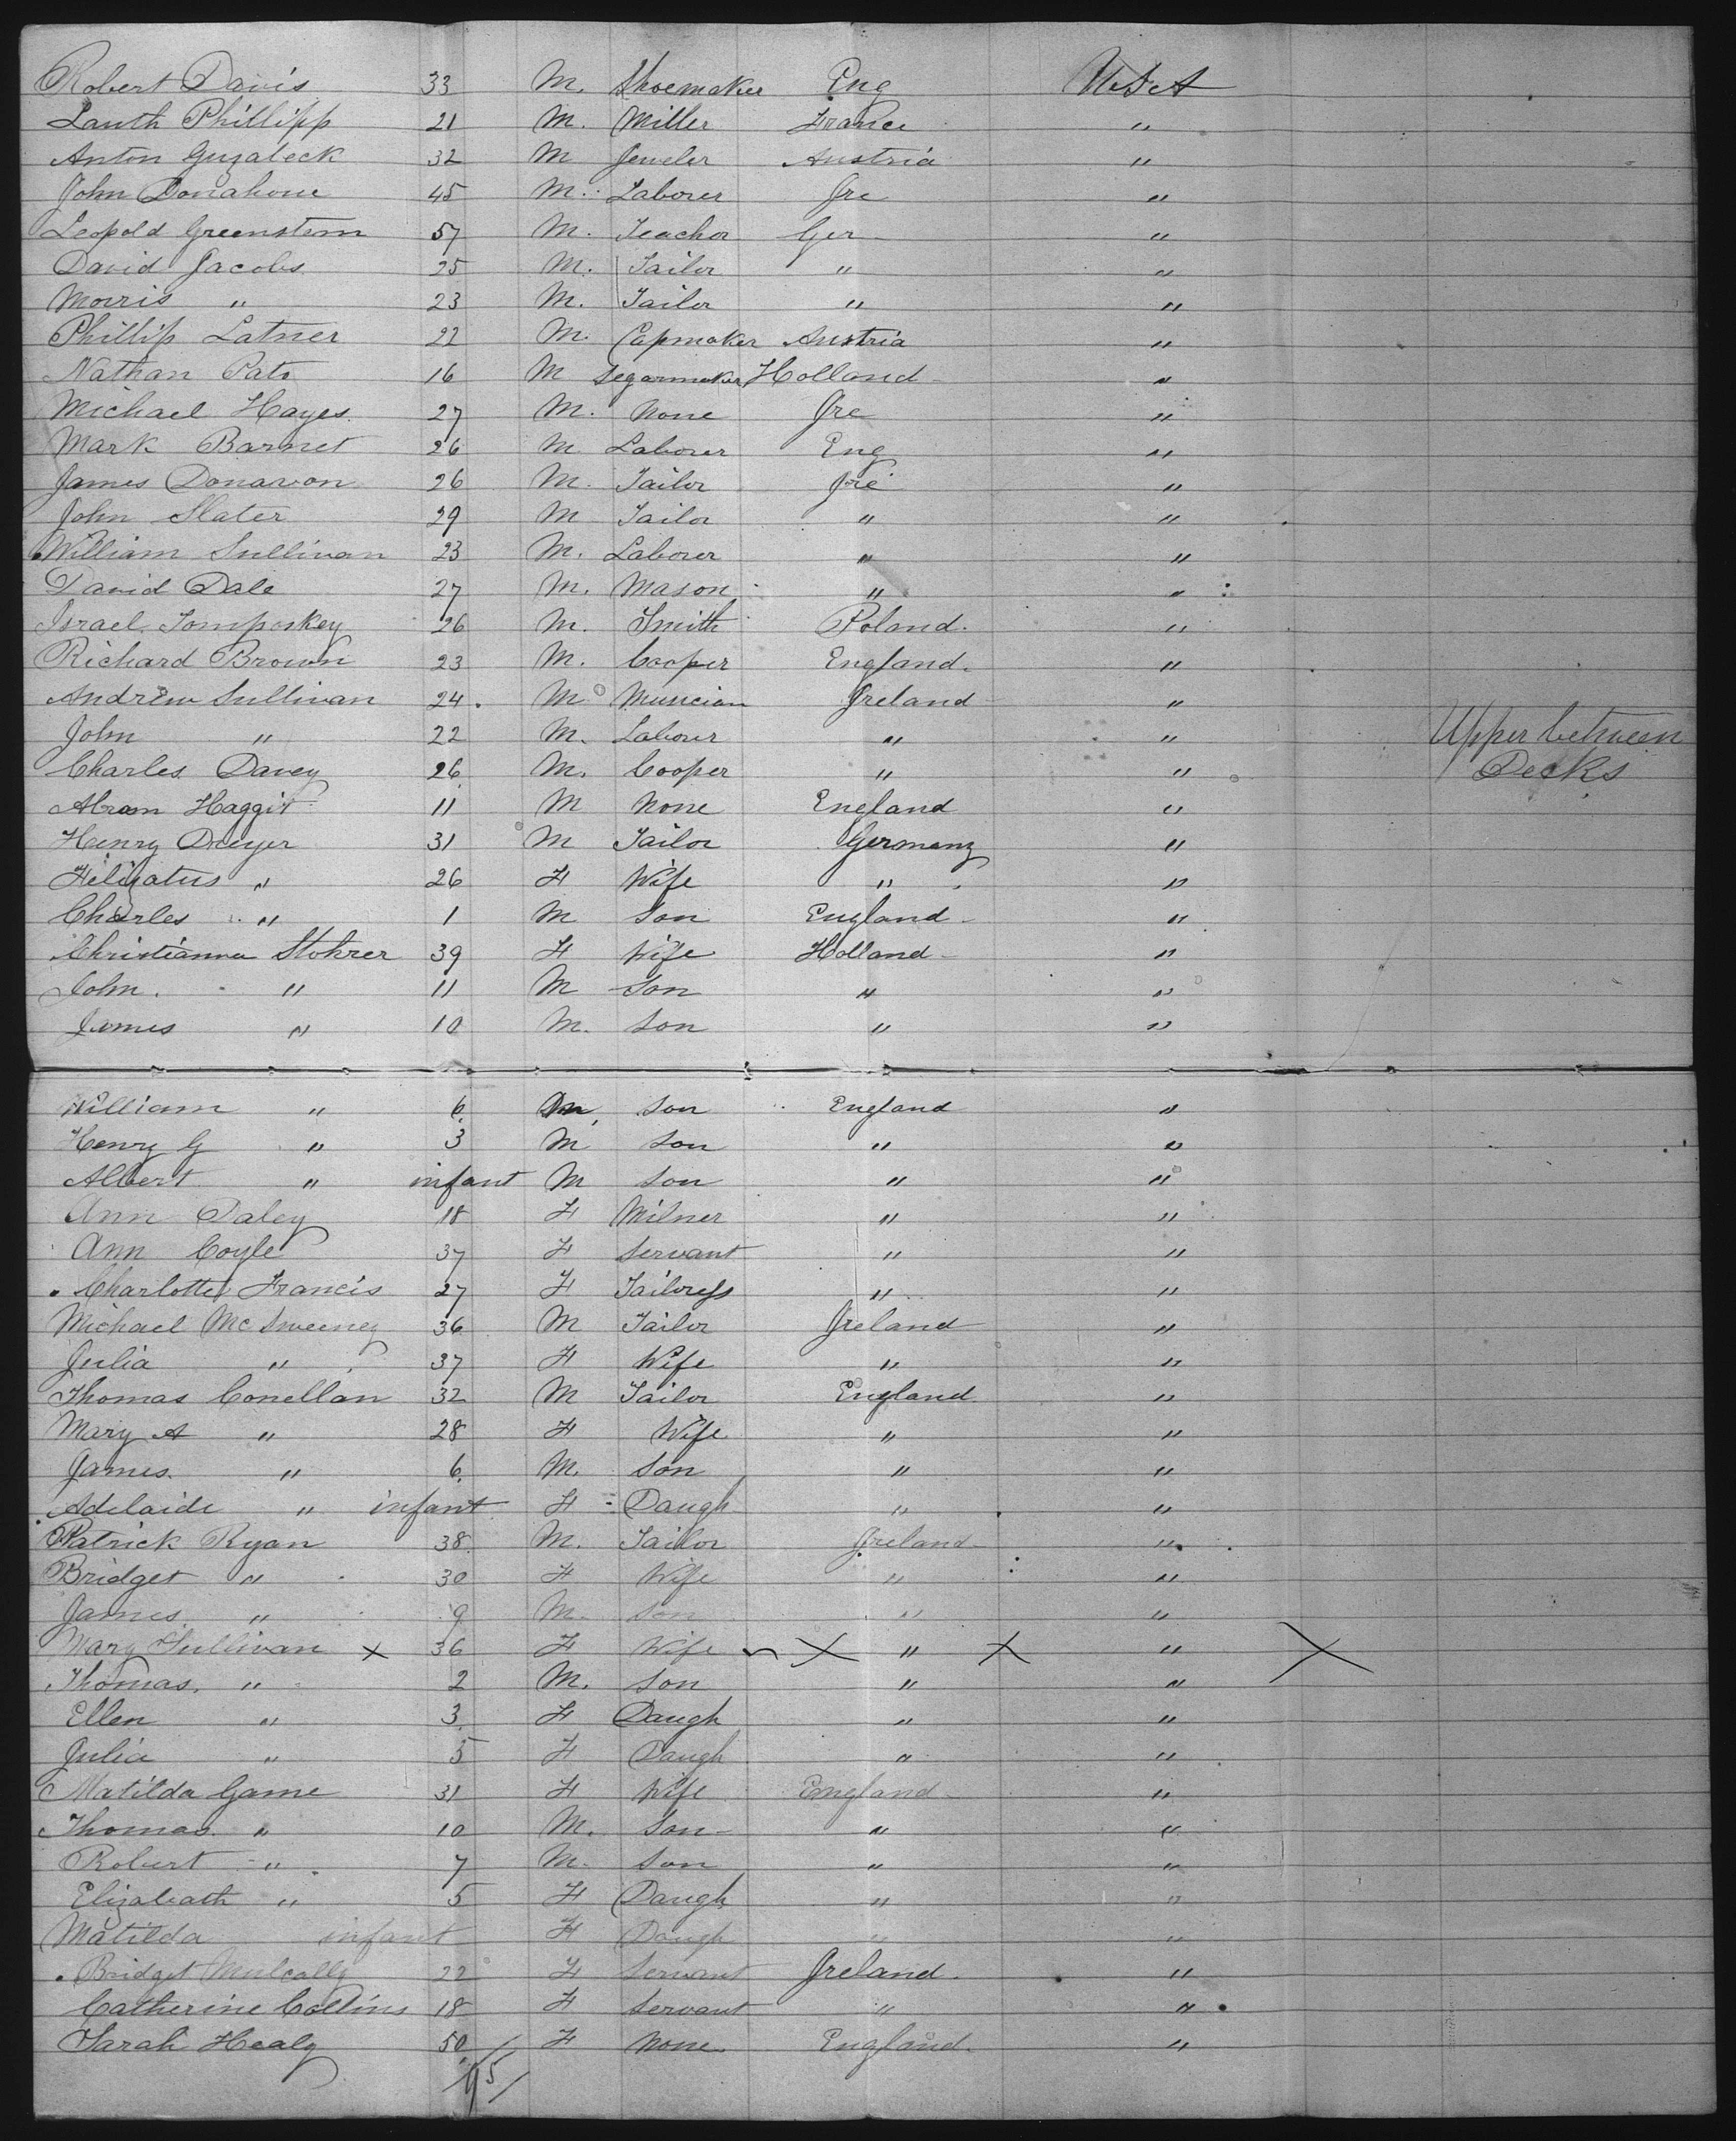 Robert Davis 33 M. Shoemaker Eng U.S.A
Lauth Phillipp 21 M. Miller France "
Anton Guzabeck 32 M Jeweler Austria "
John Donahoue 45 M. Laborer Ire "
Leopold Greenstern 57 M. Teacher Ger "
David Jacobs 25 M. Tailor " "
Morris " 23 M. Tailor " "
Phillip Latner 22 M. Capmaker Austria "
Nathan Pato 16 M Segarmaker Holland "
Michael Hayes 27 M. None Ire "
Mark Barnet 26 M. Laborer Eng "
James Donavon 26 M. Tailor Ire "
John Slater 29 M Tailor " "
William Sullivan 23 M. Laborer " "
David Dale 27 M. Mason " "
Israel Tomposkey 26 M. Smith Poland. "
Richard Brown 23 M. Cooper England. "
Andrew Sullivan 24. M Musician Ireland "
John " 22 M. Laborer " " Upper between
Charles Davey 26 M. Cooper " " Decks
Abram Haggit 11 M None England "
Henry Dreyer 31 M Tailor Germany "
Filizatus " 26 F Wife " "
Charles " 1 M Son England "
Christianna Stohrer 39 F Wife Holland "
John. " 11 M Son " "
James " 10 M. Son " "
William " 6 M Son England "
Henry G " 3 M Son " "
Albert " infant M Son " "
Ann Daley 18 F Milner " "
Ann Coyle 37 F Servant " "
Charlotte Francis 27 F Tailoress " "
Michael McSweeney 36 M Tailor Ireland "
Julia " 37 F Wife " "
Thomas Conellan 32 M Tailor England "
Mary A " 28 F Wife " "
James. " 6. M. Son " "
Adelaide " infant F Daugh " "
Patrick Ryan 38 M. Tailor Ireland "
Bridget " 30 F Wife " "
James " 9 M. Son " "
Mary Sullivan x 36 F Wife x " x " x
Thomas. " 2 M. Son " "
Ellen " 3 F Daugh " "
Julia " 5 F Daugh " "
Matilda Game 31 F Wife England "
Thomas " 10 M. Son " "
Robert " 7 M. Son " "
Elizabeath " 5 F Daugh " "
Matilda infant F Daugh " "
Bridget Mulcally 22 F Servant Ireland. "
Catherine Collins 18 F Servant " "
Sarah Healy 50 F None. England. "